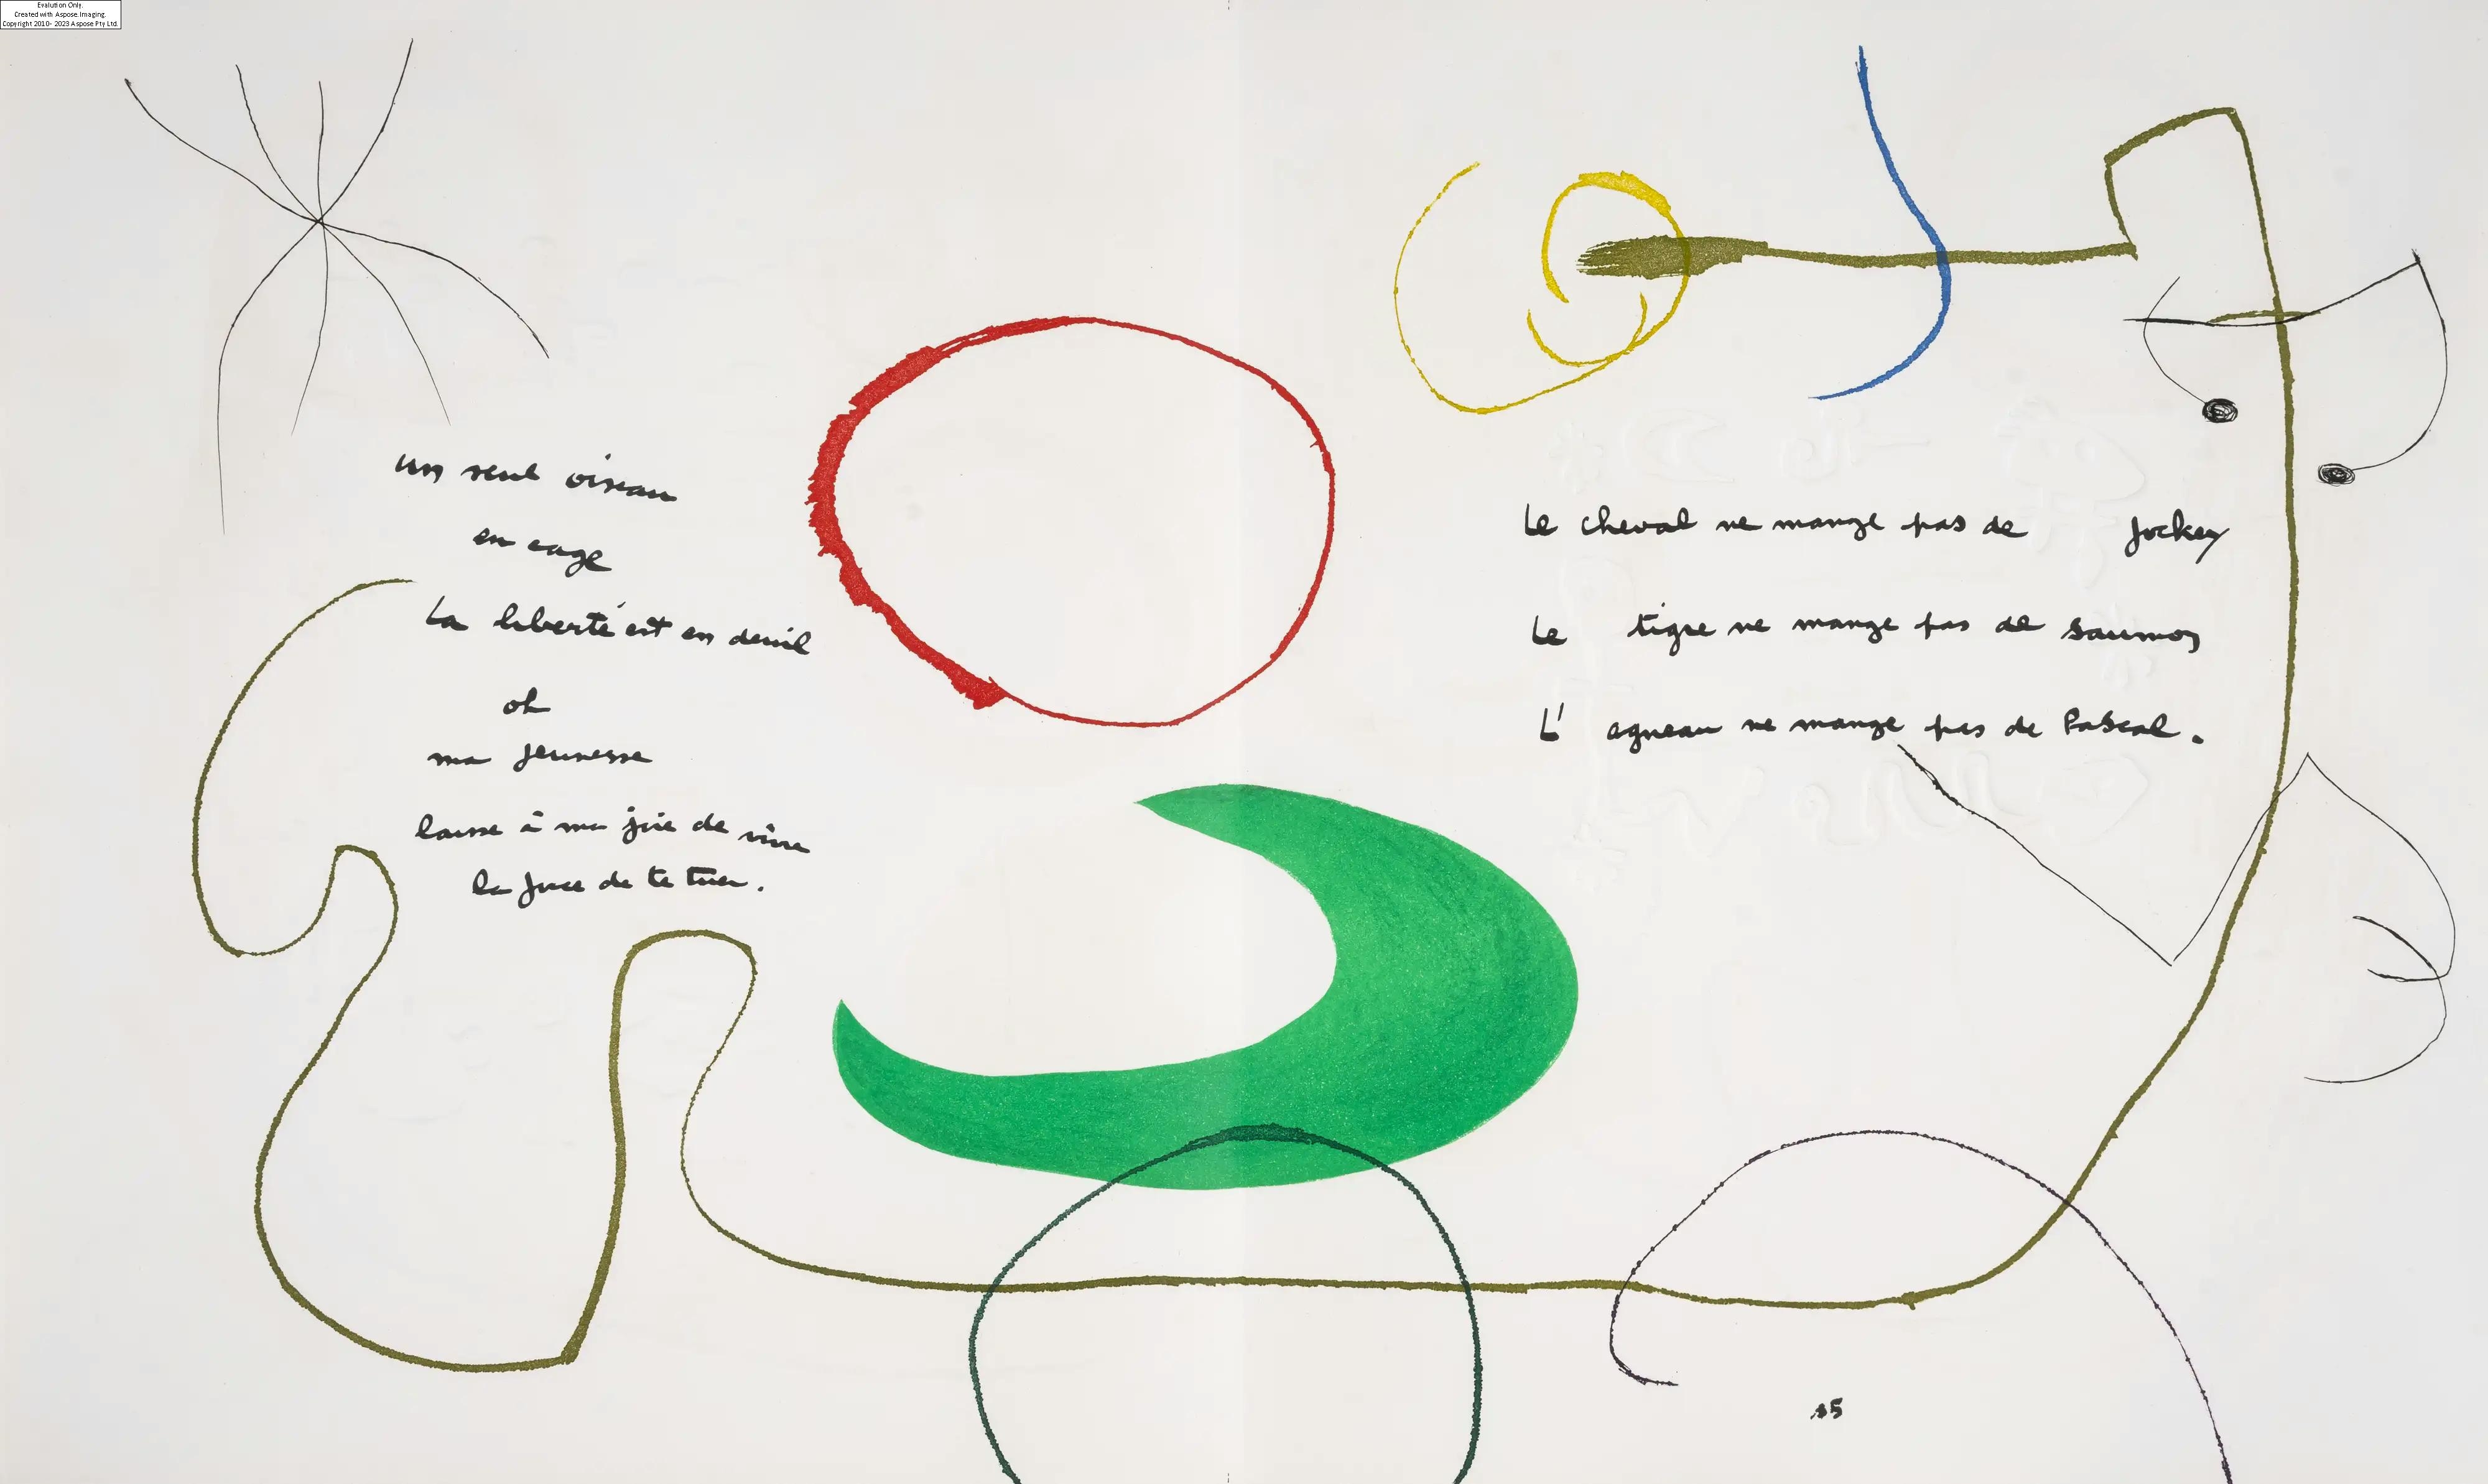 Evalution Only.
Created with Aspose.Imaging.
Copyright 2010- 2023 Aspose Pty Ltd.
un seul oiseau
en cage
La liberté est en deuil
oh
ma jeunesse
laisse à ma joie de vivre
la force de te tuer.
Le cheval ne mange pas de Jockey
Le tigre ne mange pas de saumon
L' agneau ne mange pas de Pascal.